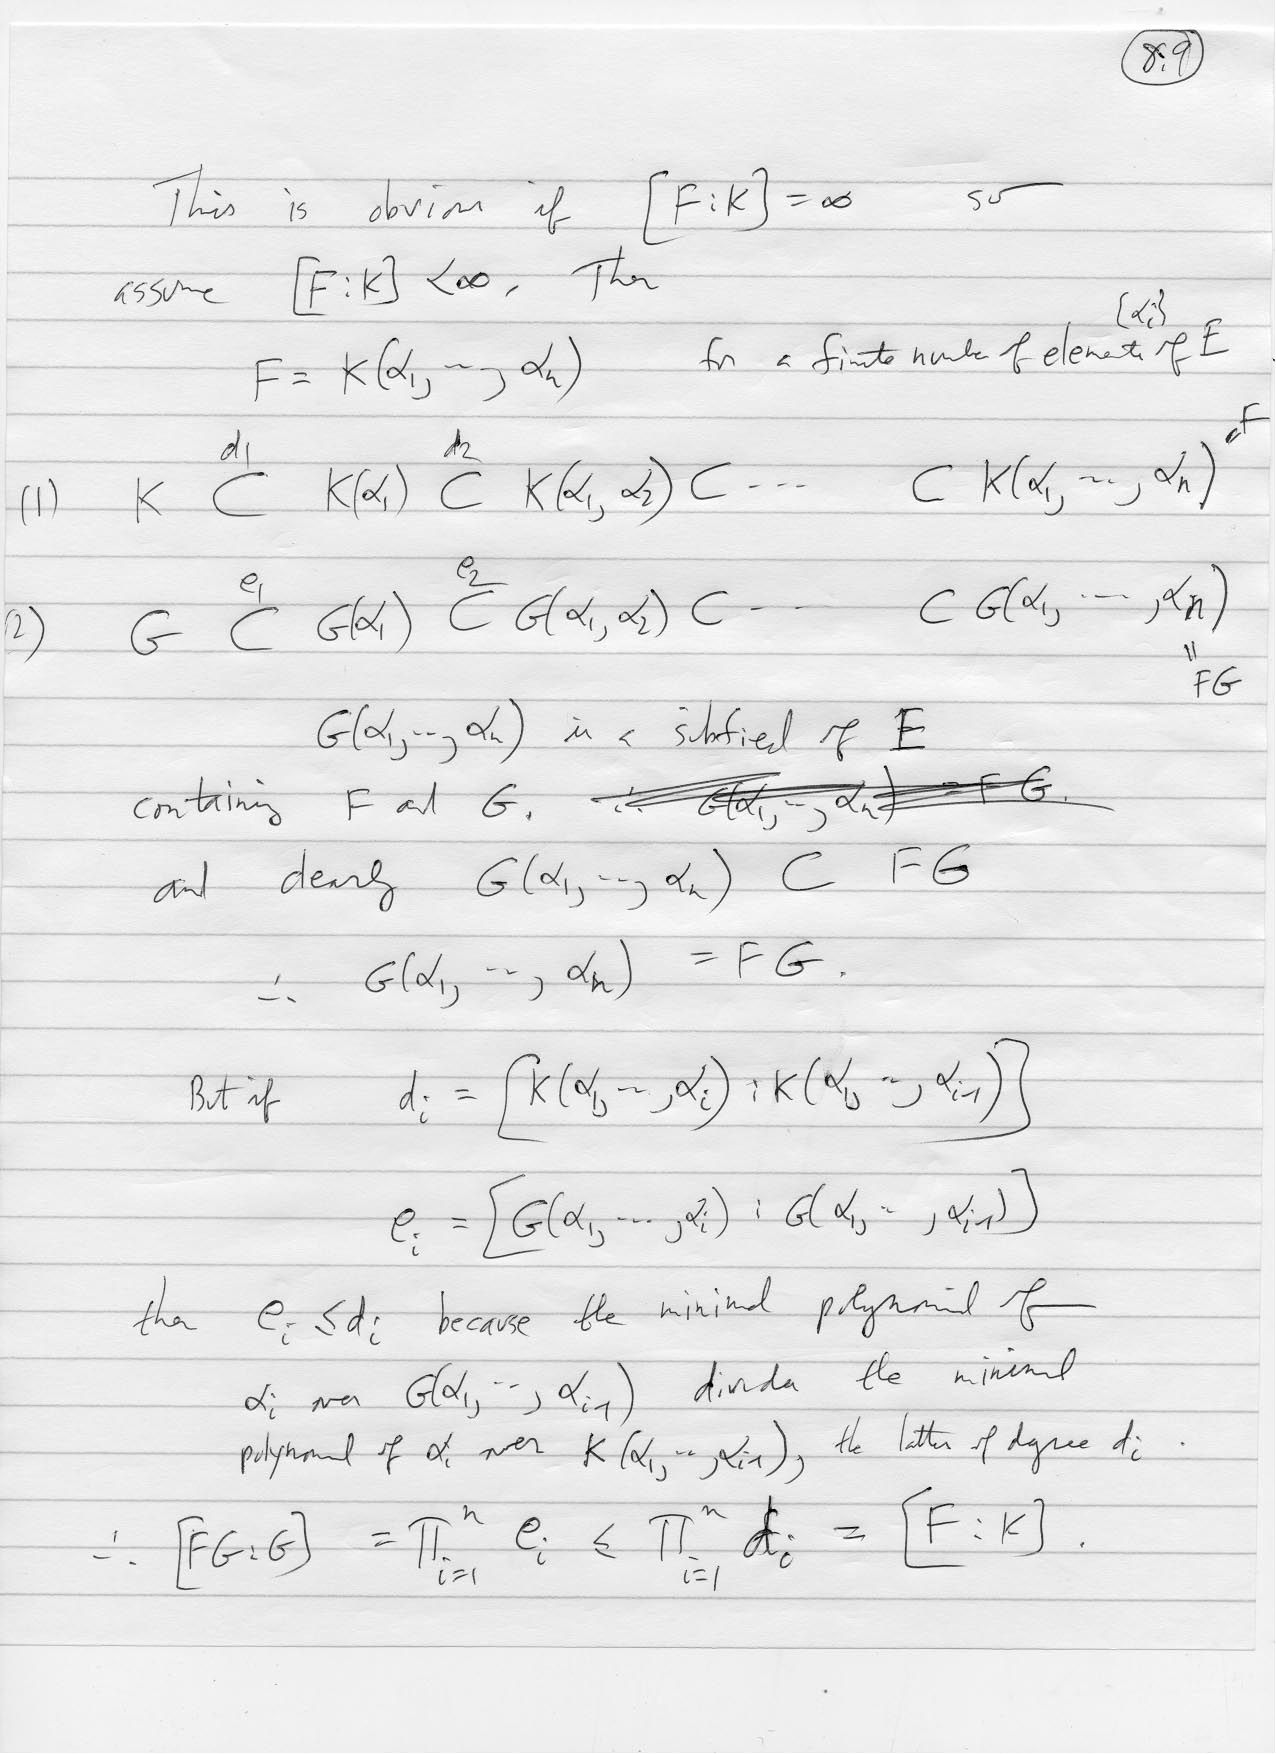 8.9
This is obvious if [F:K] = ∞ so
assume [F:K] < ∞. Then
F = K(α₁, ---, αₙ) for a finite number of elements {αᵢ} of E
(1) K ⊂ K(α₁) ⊂ K(α₁, α₂) ⊂ --- ⊂ K(α₁, ---, αₙ) = F
d₁ d₂
(2) G ⊂ G(α₁) ⊂ G(α₁, α₂) ⊂ --- ⊂ G(α₁, ---, αₙ)
e₁ e₂
= FG
G(α₁, ---, αₙ) is a subfield of E
containing F and G.
and clearly G(α₁, ---, αₙ) ⊂ FG
∴ G(α₁, ---, αₙ) = FG.
But if dᵢ = [K(α₁, ---, αᵢ) : K(α₁, ---, αᵢ₋₁)]
eᵢ = [G(α₁, ---, αᵢ) : G(α₁, --, αᵢ₋₁)]
then eᵢ ≤ dᵢ because the minimal polynomial of
αᵢ over G(α₁, ---, αᵢ₋₁) divides the minimal
polynomial of αᵢ over K(α₁, --, αᵢ₋₁), the latter of degree dᵢ.
∴ [FG:G] = ∏ⁿᵢ₌₁ eᵢ ≤ ∏ⁿᵢ₌₁ dᵢ = [F:K].